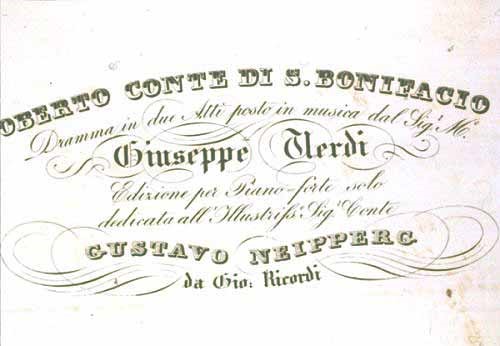 OBERTO CONTE DI S. BONIFACIO
Dramma in due Atti posto in musica dal Sig.r M.o
Giuseppe Verdi
Edizione per Piano-forte solo
dedicata all'Illustriſs. Sig.r Conte
GUSTAVO NEIPPERG
da Gio: Ricordi